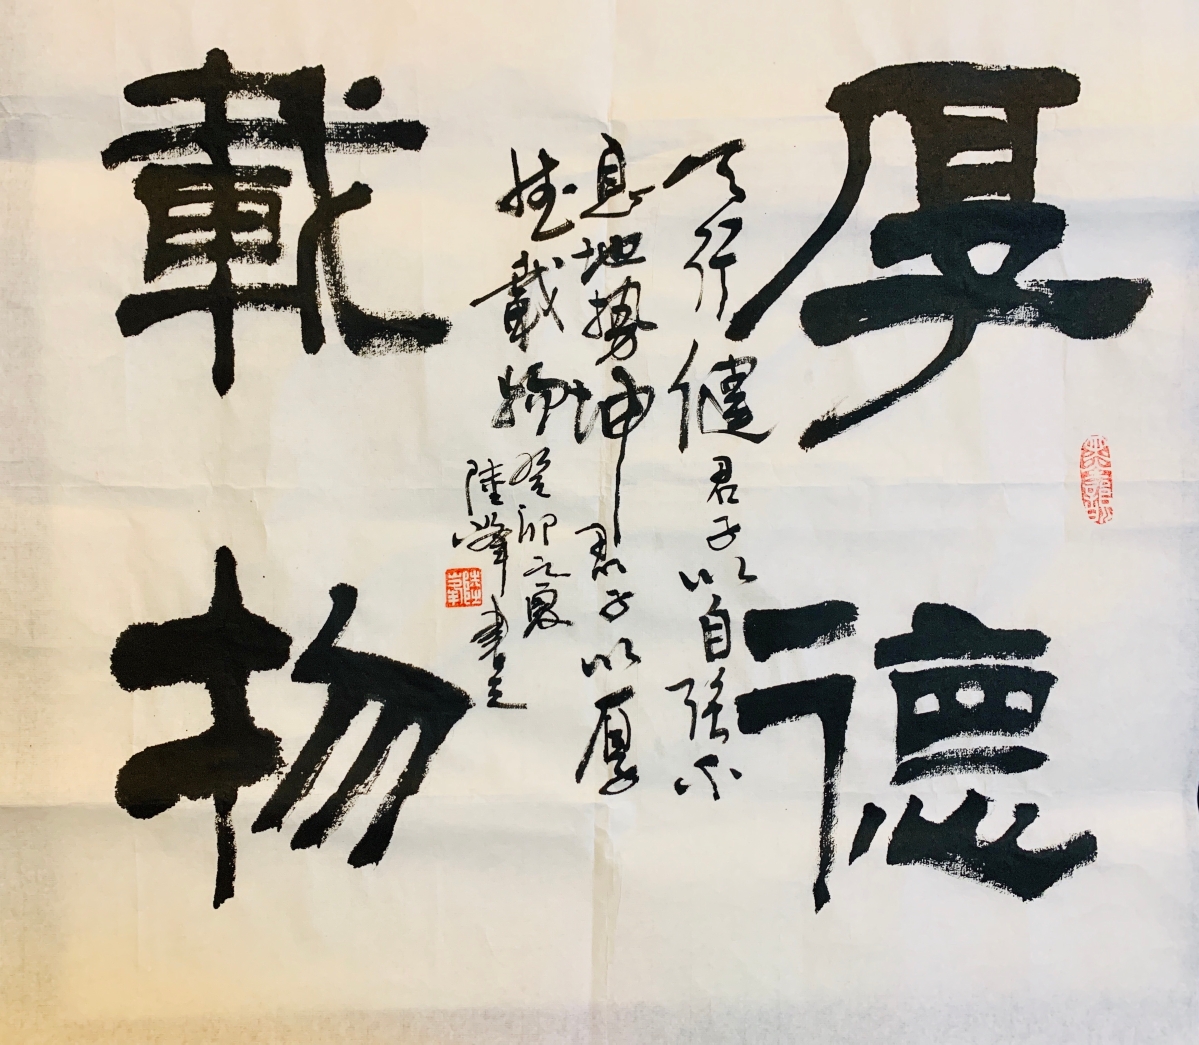 厚德
載物
天行健君子以自強不
息地勢坤君子以厚
德載物癸卯之夏
陸峰書之